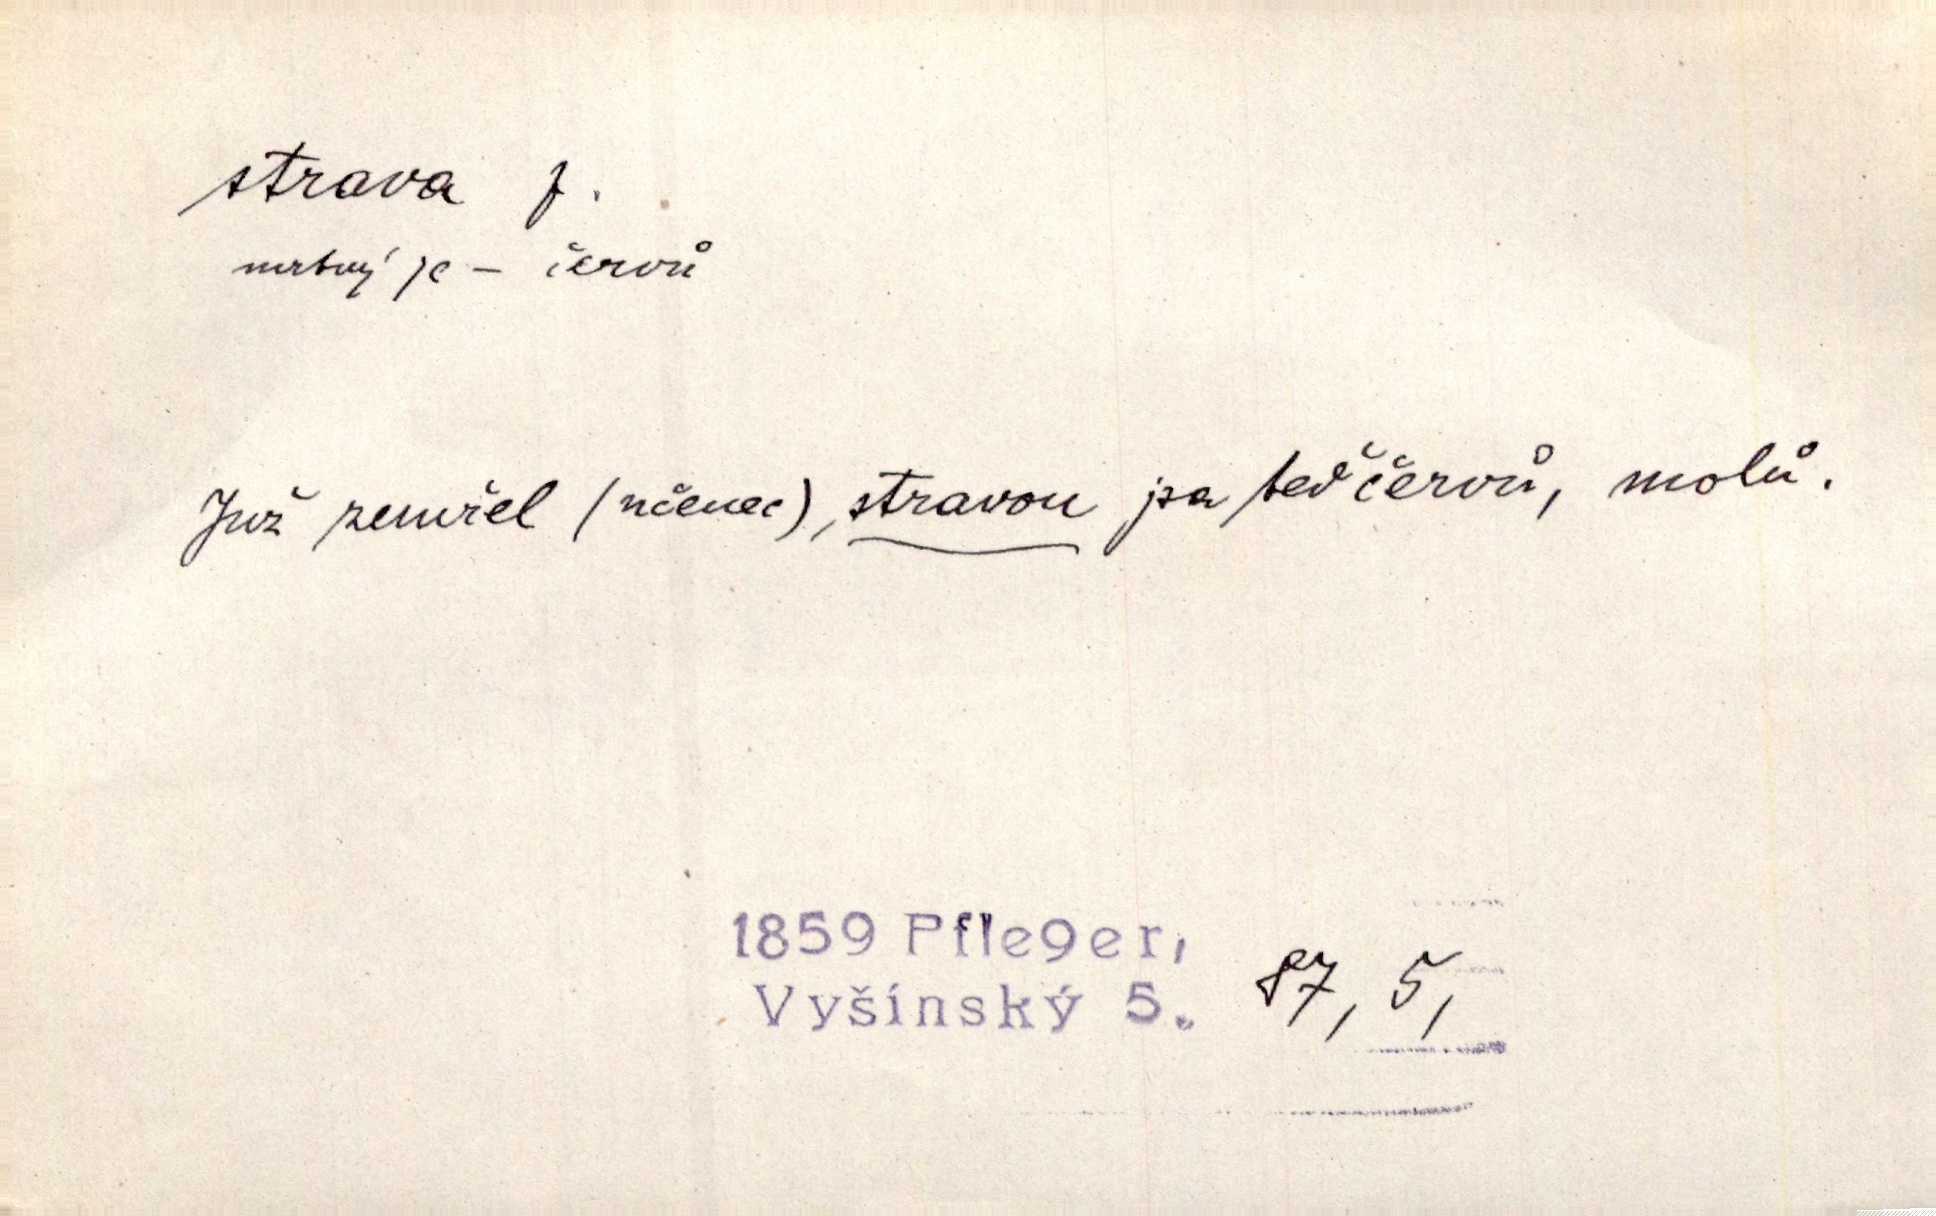 strava f.
mrtvý je – červů
Juž zemřel (učenec), stravou jsa teď červů, molů.
1859 Pfleger,
Vyšínský 5. 87, 5,